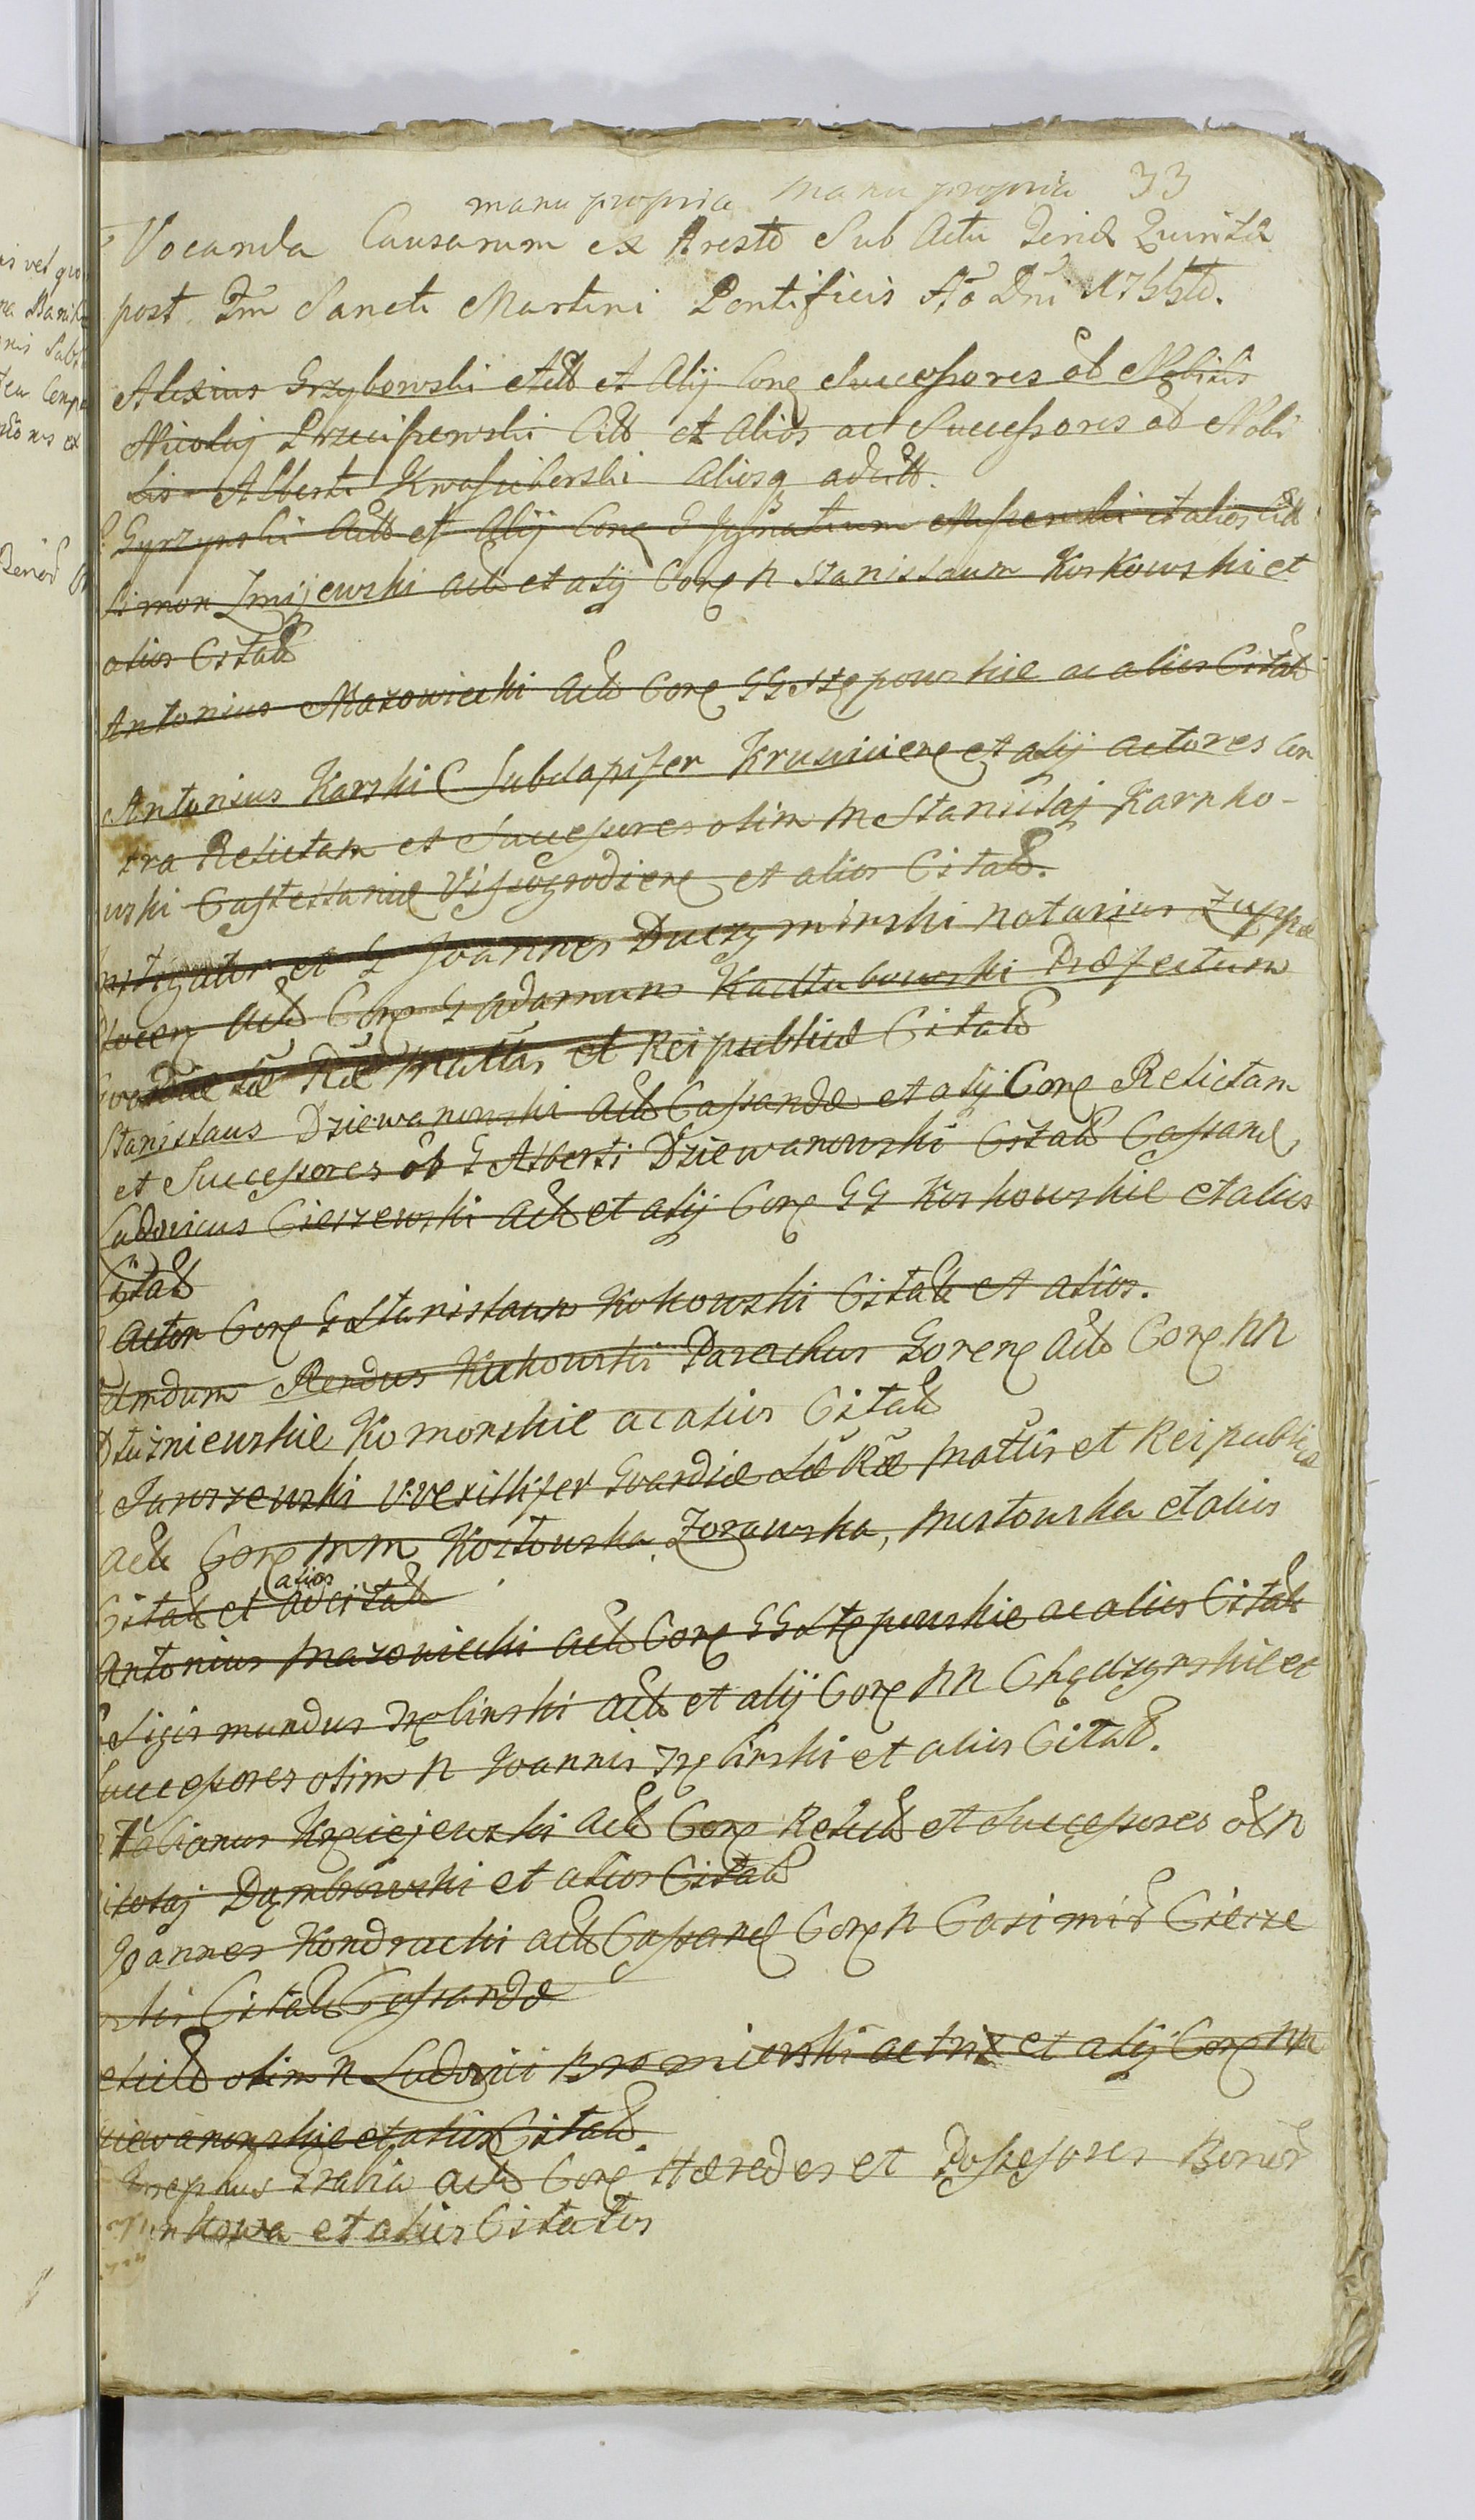 manu propria manu propria 33
Vocanda Causarum ex Aresto Sub Actu Feria Quinta
post Fm Sancti Martini Pontificis Ao Dni 1755to.
Alexius Grzybowski Actt et Alij Cong Successores ol Nobilis
Nicolaj Przeciszewski Citt et Alios ac Successores ol Nobi
lis Alberti Kwasiborski Aliosq adcitt.
Gyrzynski Actt et Alij Cong G Ignatium et alios Citt
Simon Zmijewski act et alij Cong N Stanislaum Koskowski et
alios Citatt
Antonius Mazowiecki Act Cong GG Stępowskie ac alios Citatt
Antonius Karski C Subdapifer Krusvicieng et alij actores Con
tra Relictam et Successores olim M Stanislaj Karnko-
wski Castellanie Vissogrodieng et alios Citatt.
nstigator et G Joannes Duczyminski notarius Zuppæ
act Cong G Adamum Kadłubowski Præfectum
Sæ Ræ Mattis et Reipublicæ Citatt
Stanislaus Dziewanowski act Cassandæ et alij Cong Relictam
et Successores ol G Alberti Dziewanowski Citatt Cassand
Ludovicus Cieszewski act et alij Cong GG Koskowskie et alios
Citatt
actor Cong G Stanislaum Kokowski Citatt et alios.
Rendus Kukowski Parochus Goreng act Cong NN
Dłużniewskie Komorskie ac alios Citatt
Janiszewski Vexillifer Gvardiæ Sæ Ræ Mattis et Reipublicæ
act Cong MM Kozłowska, Zorawska, Mistowska et alios
Citatt et alios adcitatt
Antonius Mazowiecki act Cong GG Stępowskie ac alios Citatt
Sigismundus Trębinski act et alij Cong NN Chędzynskie et
Successores olim N Joannis Trębinski et alios Citatt.
Krajejewski act Cong Relict et Successores ol N
icolaj Dąmbrowski et alios Citatt
Joannes Kondracki act Cassand Cong N Casimir Ciesze
wski Citatt Cassandæ
elict olim N Ludovici Bromierski actrix et alij Cong NN
ziewanowskie et alios Citatt
Josephus Grabia act Cong Hæredes et Possesores Bonor
et alios Citatos